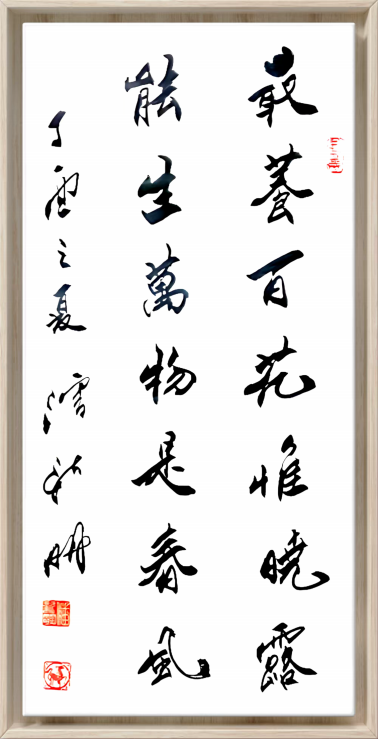 最養百花惟曉露
能生萬物是春風
丁酉之夏